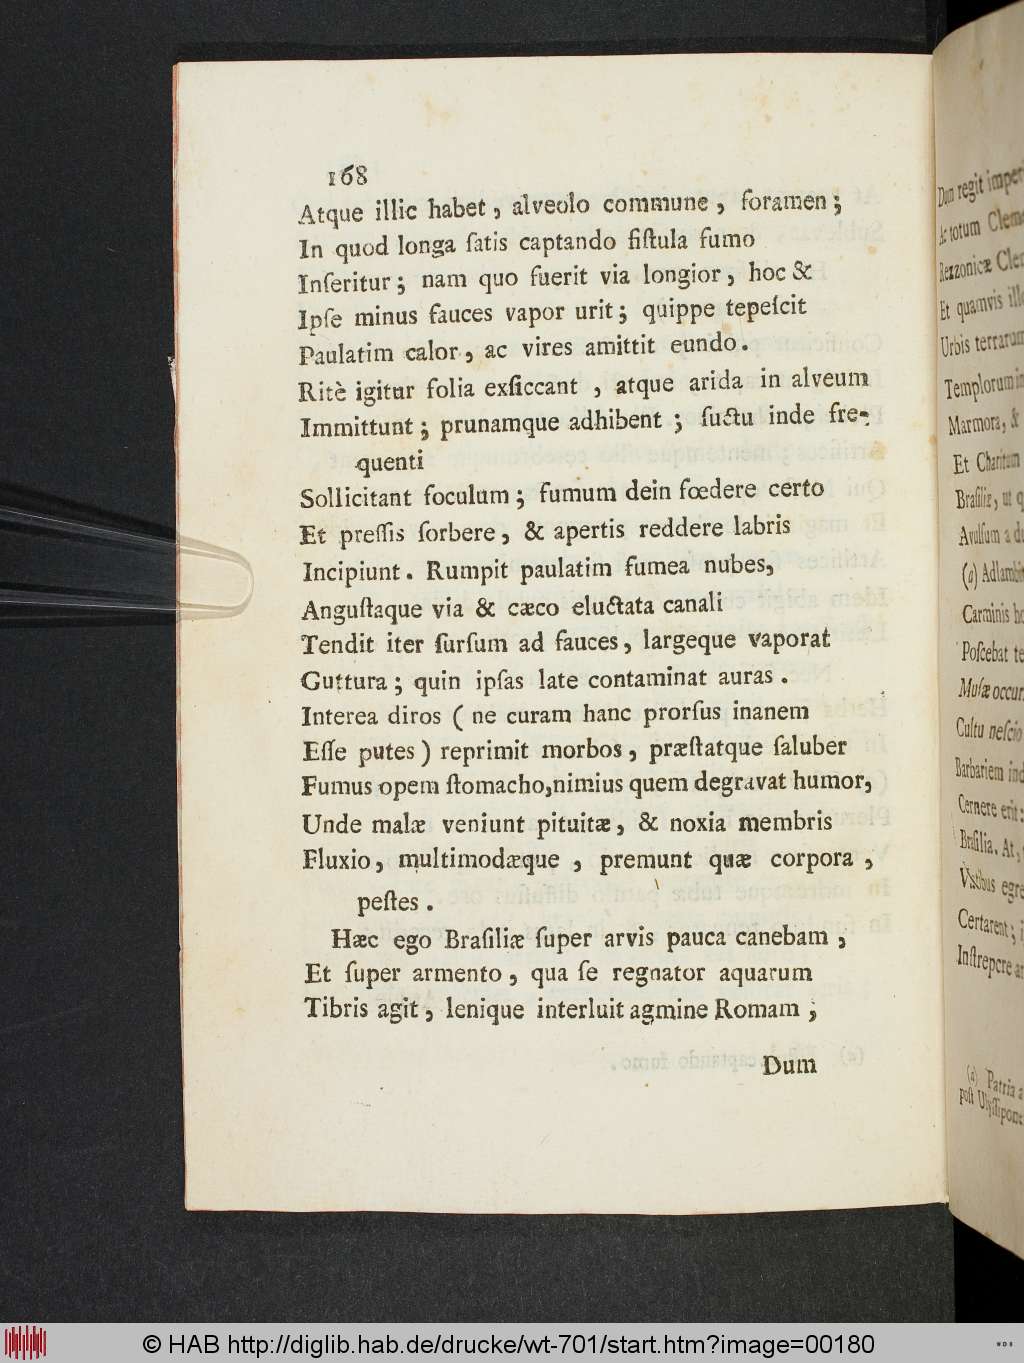 168
Atque illic habet, alveolo commune, foramen;
In quod longa ſatis captando fiſtula fumo
Inſeritur; nam quo fuerit via longior, hoc &
Ipſe minus fauces vapor urit; quippe tepeſcit
Paulatim calor, ac vires amittit eundo.
Ritè igitur folia exſiccant, atque arida in alveum
Immittunt; prunamque adhibent; ſuctu inde fre-
quenti
Sollicitant foculum; fumum dein fœdere certo
Et preſſis ſorbere, & apertis reddere labris
Incipiunt. Rumpit paulatim fumea nubes,
Anguſtaque via & cæco eluctata canali
Tendit iter ſurſum ad fauces, largeque vaporat
Guttura; quin ipſas late contaminat auras.
Interea diros (ne curam hanc prorſus inanem
Eſſe putes) reprimit morbos, præſtatque ſaluber
Fumus opem ſtomacho, nimius quem degravat humor,
Unde malæ veniunt pituitæ, & noxia membris
Fluxio, multimodæque, premunt quæ corpora,
peſtes.
Hæc ego Braſiliæ ſuper arvis pauca canebam,
Et ſuper armento, qua ſe regnator aquarum
Tibris agit, lenique interluit agmine Romam;
Dum
Dum regit
Ac totum
Rezzonicæ
Et quamvis
Urbis terrarum
Templorum
Marmora, &
Et Charitum
Braſiliæ, ut
Avulſum a
(a)
Carminis
Poſcebat
Muſæ
Cultu neſcio
Barbariem
Cernere erit:
Braſilia. At,
Certarent;
Inſtrepere
(a) Patria
poſt
© HAB http://diglib.hab.de/drucke/wt-701/start.htm?image=00180